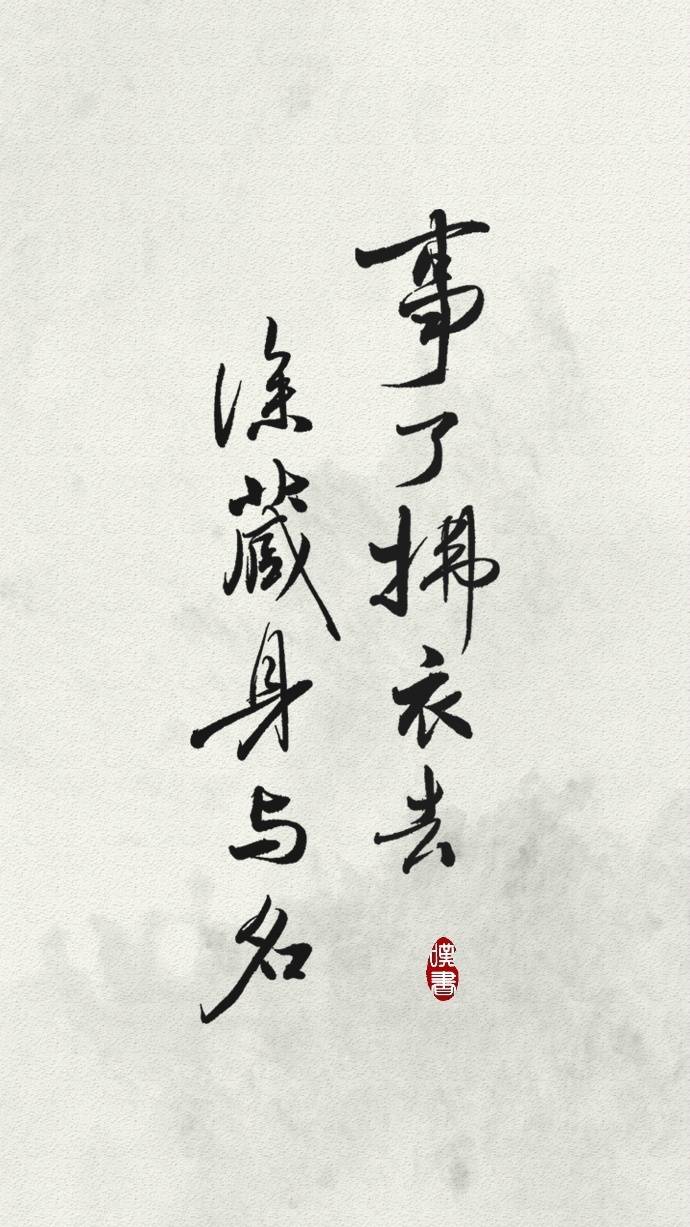 事了拂衣去
深藏身与名
漢書